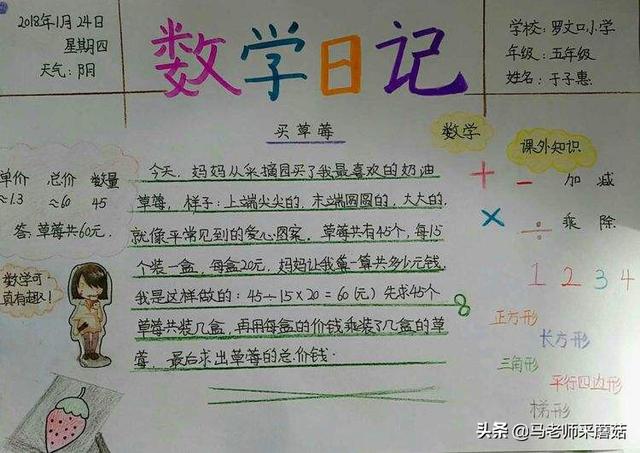 2018年1月24日
星期四
天气:阴
数学日记
学校:罗文口小学
年级:五年级
姓名:于子惠
买草莓
今天,妈妈从采摘园买了我最喜欢的奶油
草莓,样子:上端尖尖的,末端圆圆的,大大的,
就像平常见到的爱心图案。草莓共有45个,每15
个装一盒,每盒20元,妈妈让我算一算共多少元钱。
我是这样做的:45÷15×20=60(元)先求45个
草莓共装几盒,再用每盒的价钱乘装了几盒的草
莓 最后求出草莓的总价钱.
8
单价 总价 数量
≈1.3 ≈60 45
答:草莓共60元.
数学可
真有趣!
数学
课外知识
+ - 加 减
× ÷ 乘 除
1 2 3 4
正方形
长方形
三角形
平行四边形
梯形
头条 @马老师采蘑菇